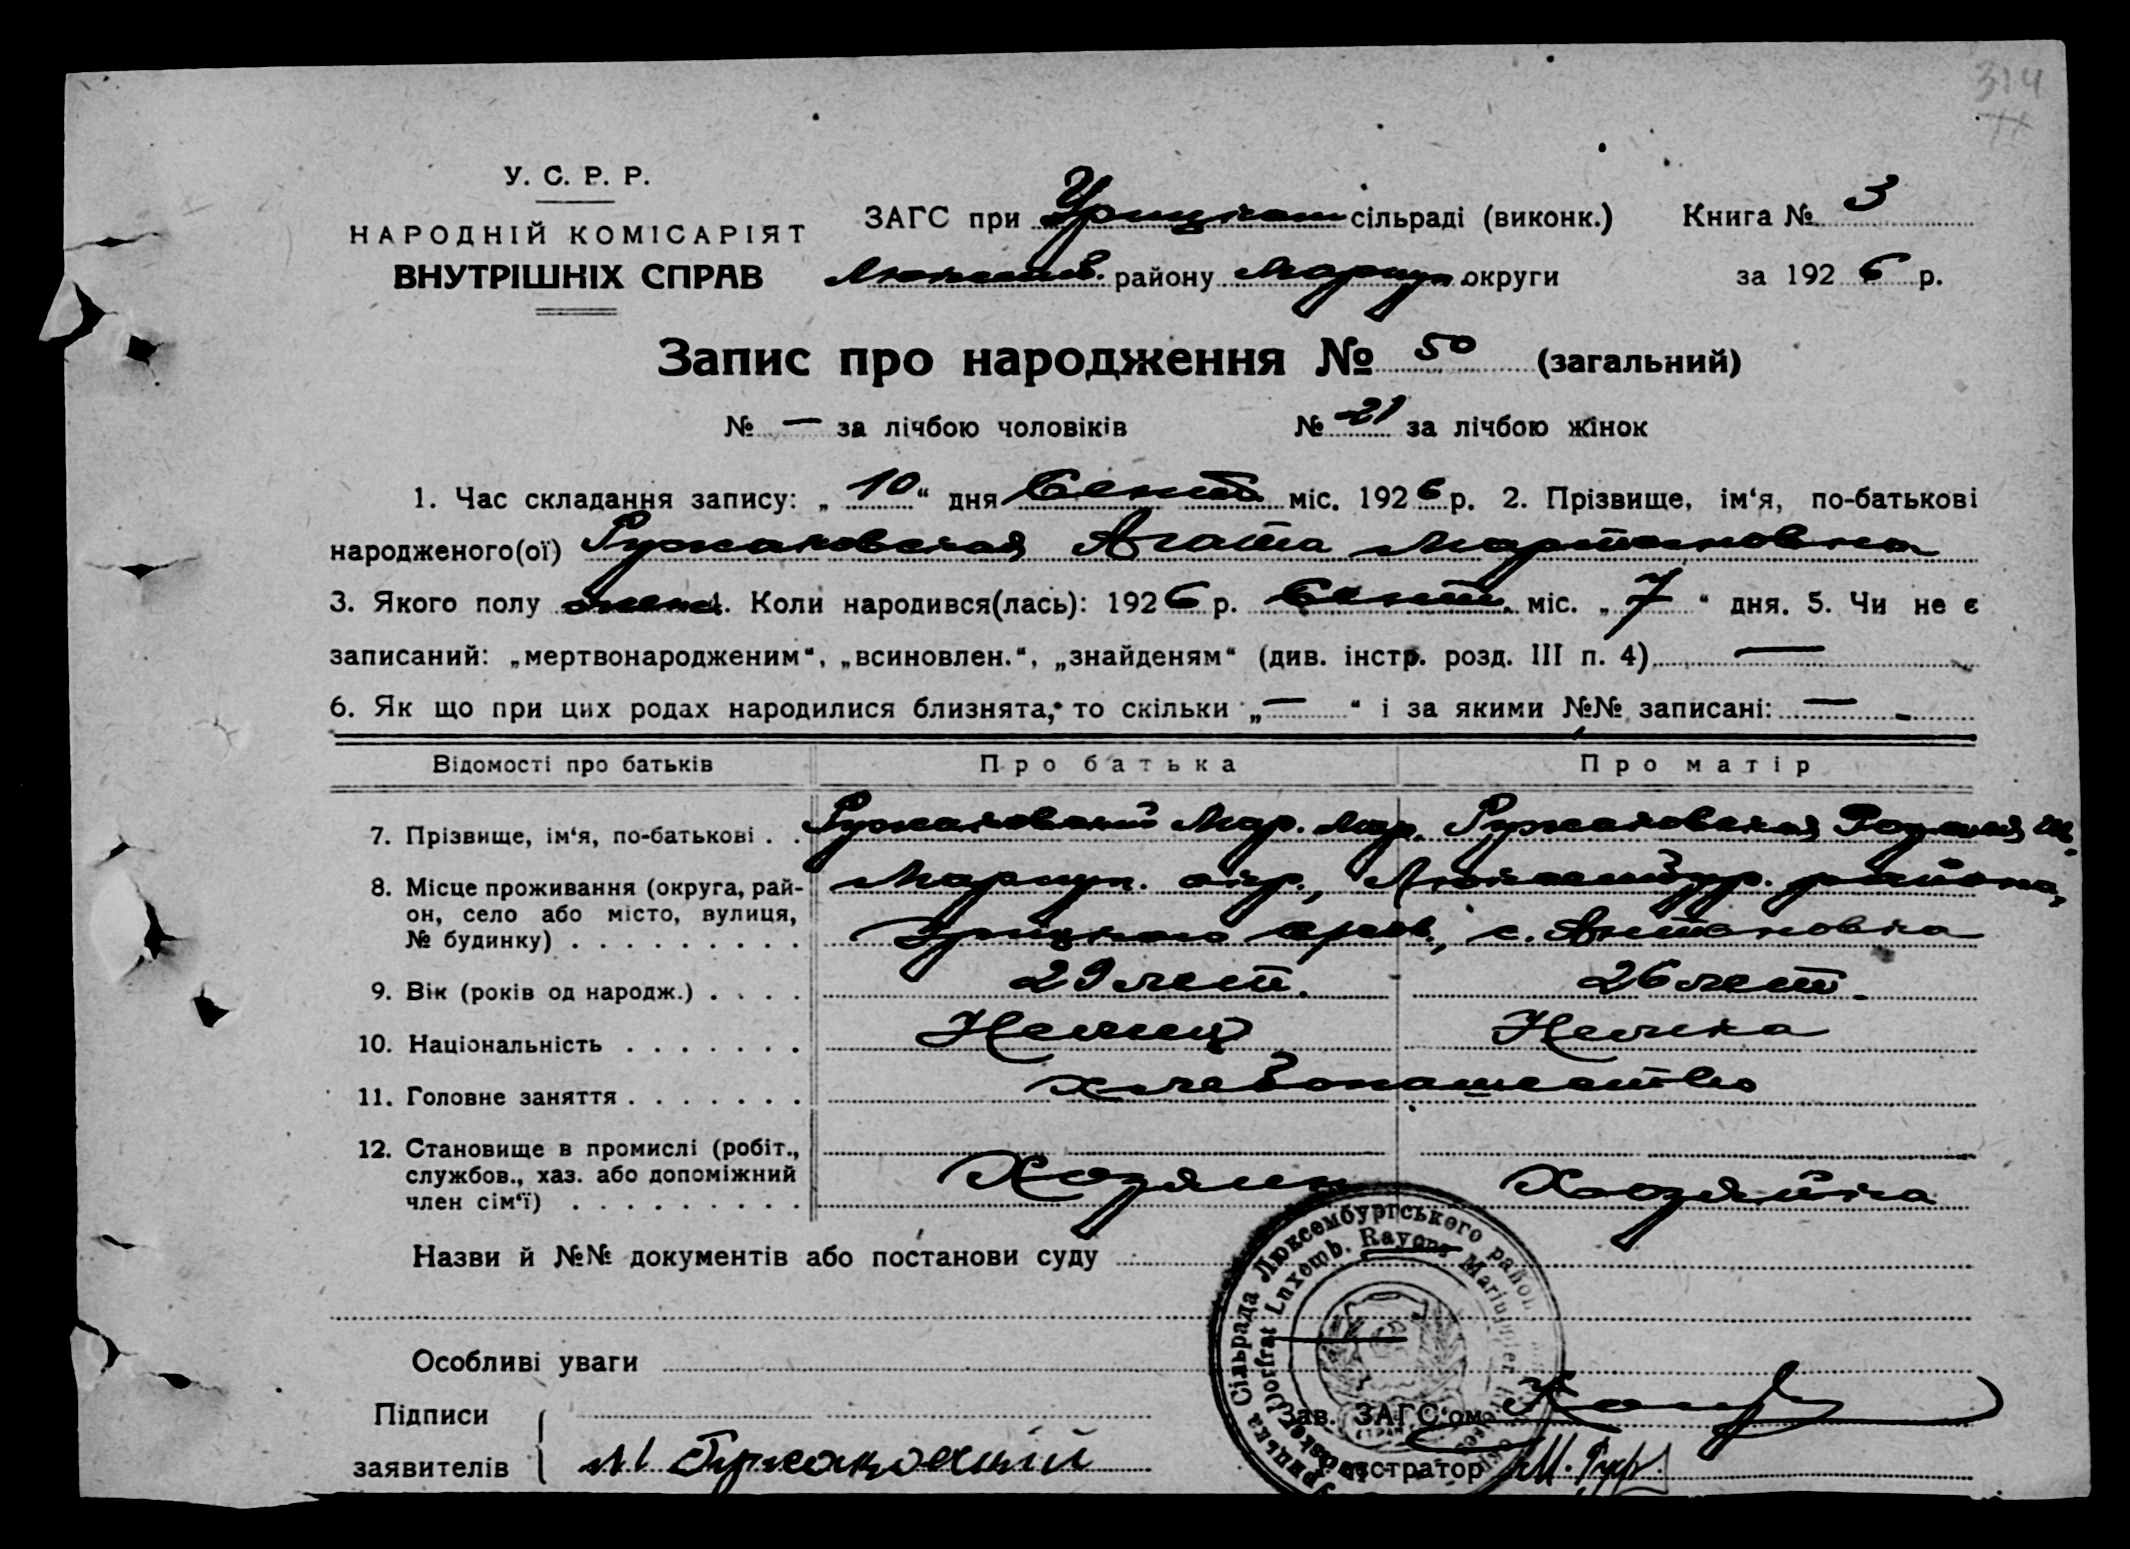 314
У. С. Р. Р.
НАРОДНІЙ КОМІСАРІЯТ
ВНУТРІШНІХ СПРАВ
ЗАГС при Урицком сільраді (виконк.) Книга № 3
Люксемб. району Мариуп. округи за 1926 р.
Запис про народження № 50 (загальний)
№ — за лічбою чоловіків № 21 за лічбою жінок
1. Час складання запису: „10“ дня Сент. міс. 1926 р. 2. Прізвище, ім‘я, по-батькові
народженого(ої) Ружаковская Агата Мартиновна
3. Якого полу женс. 4. Коли народився(лась): 1926 р. Сент. міс. „7“ дня. 5. Чи не є
записаний: „мертвонародженим“, „всиновлен.“, „знайденям“ (див. інстр. розд. III п. 4) —
6. Як що при цих родах народилися близнята, то скільки „—“ і за якими №№ записані: —
Відомості про батьків Про батька Про матір
7. Прізвище, ім‘я, по-батькові . . Ружаковский Мар. Мар. Ружаковская
8. Місце проживання (округа, рай-
он, село або місто, вулиця,
№ будинку) . . . . . . . . .
Мариуп. окр., Люксембур. района,
Урицкого с. Антоновка
9. Вік (років од народж.) . . . . 29 лет. 26 лет.
10. Національність . . . . . . . Немец Немка
11. Головне заняття . . . . . . . хлебопашество
12. Становище в промислі (робіт.,
службов., хаз. або допоміжний
член сім‘ї) . . . . . . . . .
Хозяин Хозяйка
Назви й №№ документів або постанови суду
Особливі уваги
Підписи
заявителів М. Ружаковский
Зав. ЗАГС‘ом
Реєстратор М.
Урицька Сільрада Люксембургського район
Dorfrat Luxemb. Rayons Mariupoler